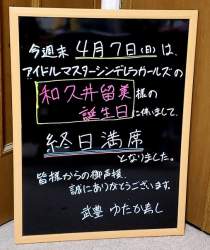 今週末 4月7日(日)は、
アイドルマスターシンデレラガールズの
和久井留美様の
誕生日に伴いまして、
終日満席
となりました。
皆様からの御声援、
誠にありがとうございます。
武豊 ゆたか寿し